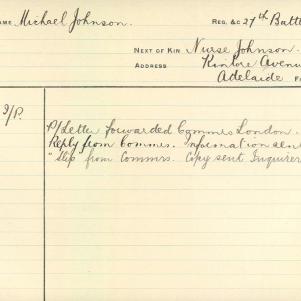 NAME Michael Johnson. REG. &C 27th Batt
NEXT OF KIN Nurse Johnson.
ADDRESS Kintore Avenu
Adelaide
P/Letter forwarded Commrs London.
Reply from Commrs. Information sent
" Slip from Commrs. Copy sent Inquirer